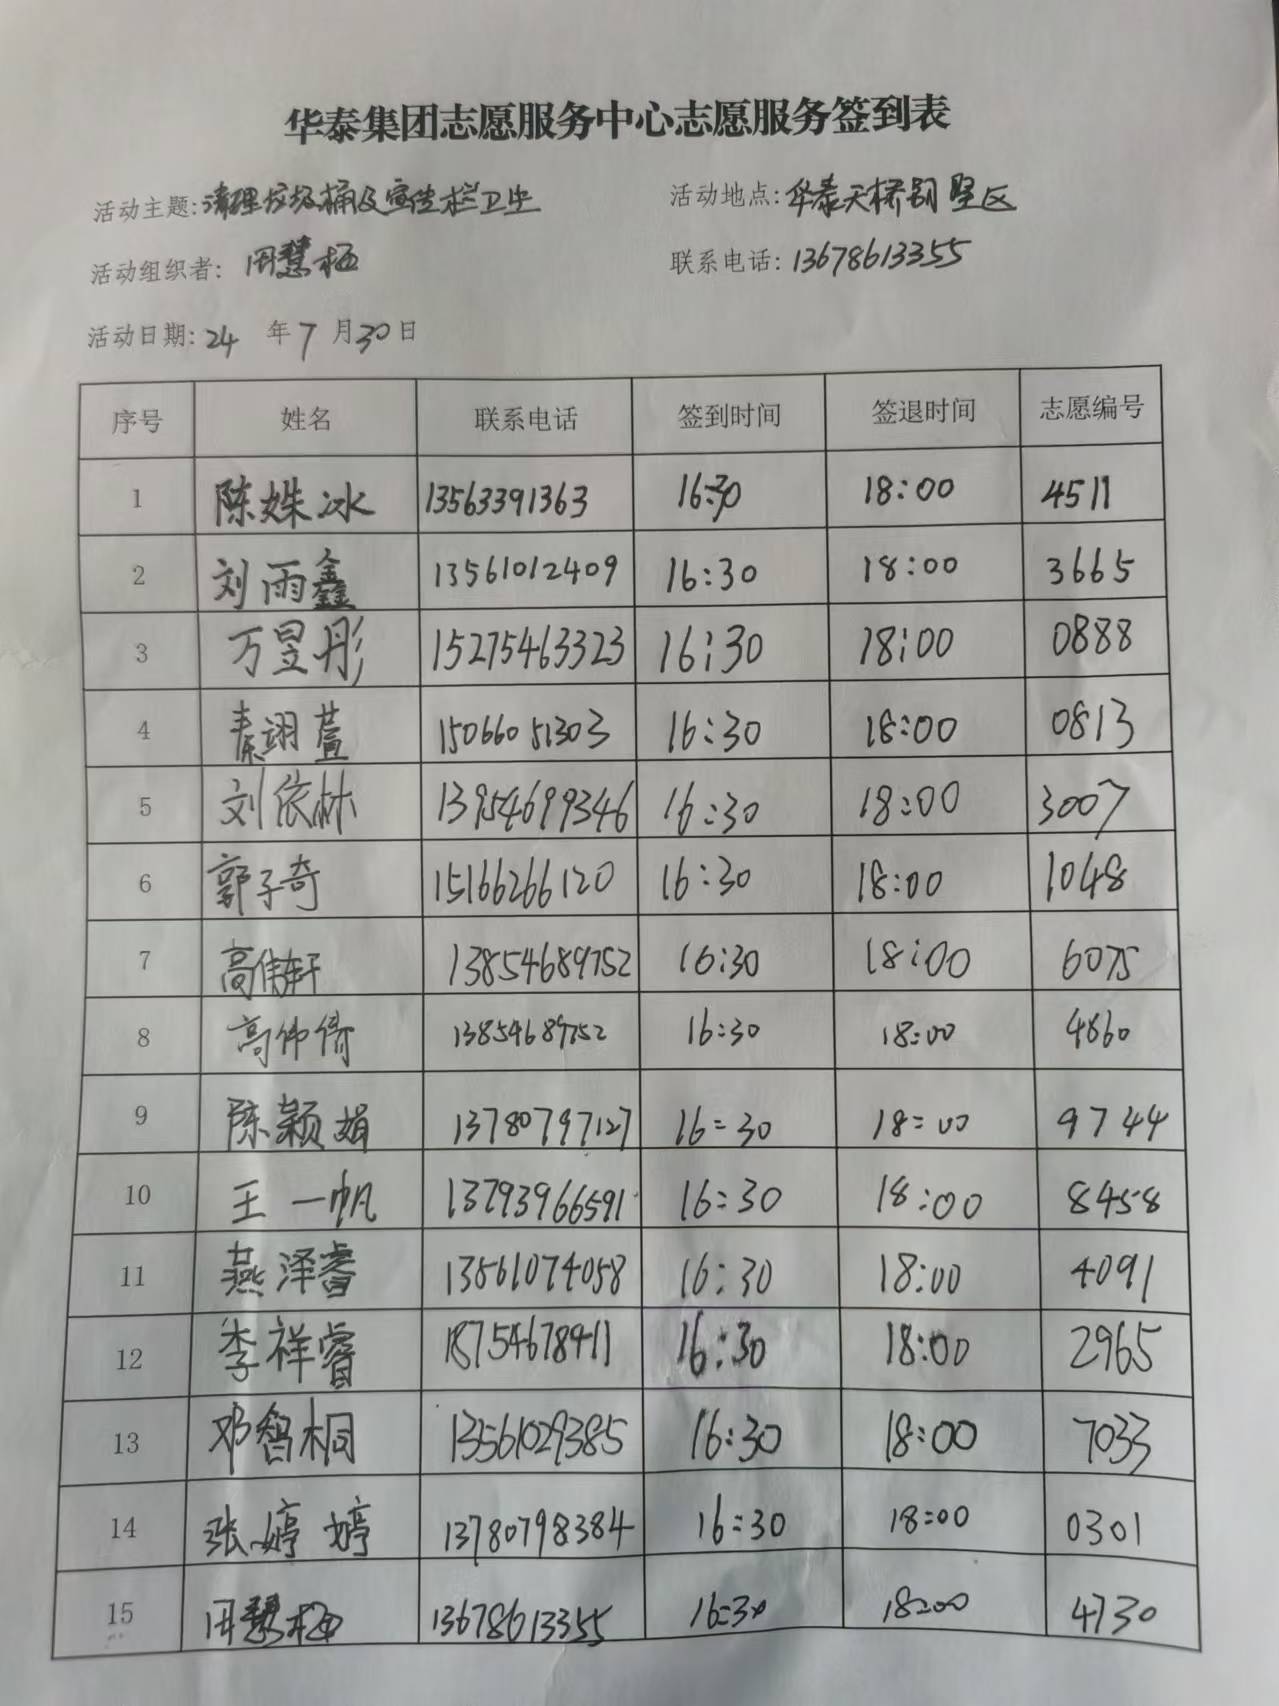 华泰集团志愿服务中心志愿服务签到表
活动主题:清理垃圾桶及宣传栏卫生 活动地点:华泰天桥别墅区
活动组织者: 田慧梅 联系电话:13678613355
活动日期:24 年7 月30日
序号 姓名 联系电话 签到时间 签退时间 志愿编号
1 陈姝冰 13563391363 16:30 18:00 4511
2 刘雨鑫 13561012409 16:30 18:00 3665
3 万昱彤 15275463323 16:30 18:00 0888
4 秦翊萱 15066051303 16:30 18:00 0813
5 刘依林 13954699346 16:30 18:00 3007
6 郭子奇 15166266120 16:30 18:00 1048
7 高伟轩 13854689752 16:30 18:00 6075
8 高伟倚 13854689752 16:30 18:00 4860
9 陈颖娟 13780797127 16:30 18:00 9744
10 王一帆 13793966591 16:30 18:00 8458
11 燕泽睿 13561074058 16:30 18:00 4091
12 李祥睿 18754678411 16:30 18:00 2965
13 邓智桐 13561029385 16:30 18:00 7033
14 张婷婷 13780798384 16:30 18:00 0301
15 田慧梅 13678613355 16:30 18:00 4730